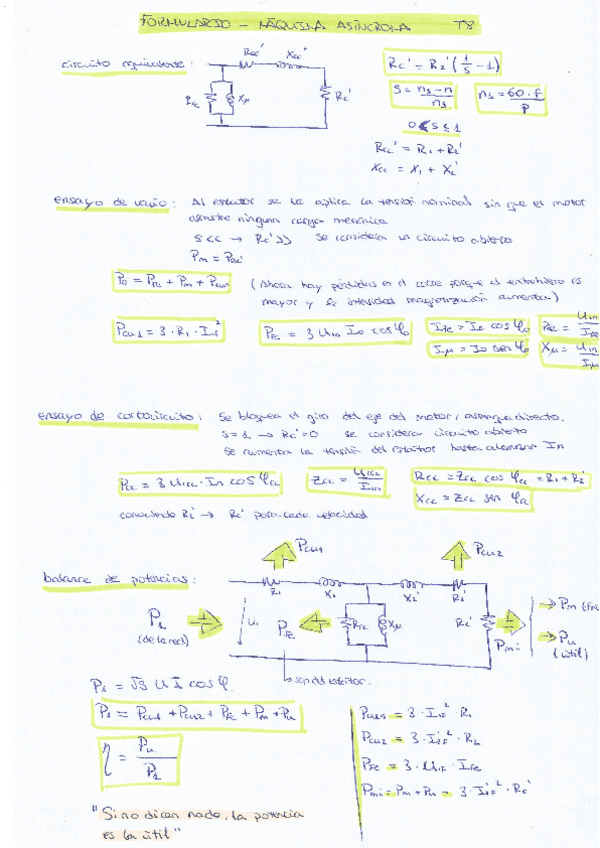 FORMULARIO - MÁQUINA ASÍNCRONA T8
circuito equivalente:
Rcc' Xcc'
RFe Xμ Rc'
Rc' = R2' (1/S - 1)
S = (ns - n)/ns
ns = 60·f/P
0 < S ≤ 1
Rcc' = R1 + R2'
Xcc = X1 + X2'
ensayo de vacío: Al estator se le aplica la tensión nominal sin que el motor
arrastre ninguna carga mecánica
S<< → Rc'>> se considera un circuito abierto
Pm = PRc'
P0 = PFe + Pm + Pcu1 (Ahora hay pérdidas en el cobre porque el entrehierro es
mayor y la intensidad magnetización aumenta)
Pcu1 = 3·R1·I1f²
PFe = 3 U1n I0 cos φ0
IFe = I0 cos φ0
Iμ = I0 sen φ0
RFe = U1n/IFe
Xμ = U1n/Iμ
ensayo de cortocircuito: Se bloquea el giro del eje del motor, arranque directo.
S=1 → Rc'=0 se considera circuito abierto
Se aumenta la tensión del estator hasta alcanzar In
Pcc = 3 U1cc · In cos φcc
Zcc = U1cc/I1n
Rcc = Zcc cos φcc = R1 + R2'
Xcc = Zcc sen φcc
conociendo R2' → Rc' para cada velocidad
balance de potencias:
Pcu1 Pcu2
R1 X1 X2' R2'
P1
(de la red)
U1 PFe RFe Xμ Rc' Pmi
→ Pm
→ Pu
(útil)
→ son del estator.
P1 = √3 U I cos φ
P1 = Pcu1 + Pcu2 + PFe + Pm + Pu
η = Pu/P1
Pcu1 = 3·I1f²·R1
Pcu2 = 3·I1f²·R2
PFe = 3·U1f·IFe
Pmi = Pm + Pu = 3·I1f²·Rc'
"Si no dicen nada, la potencia
es la útil"